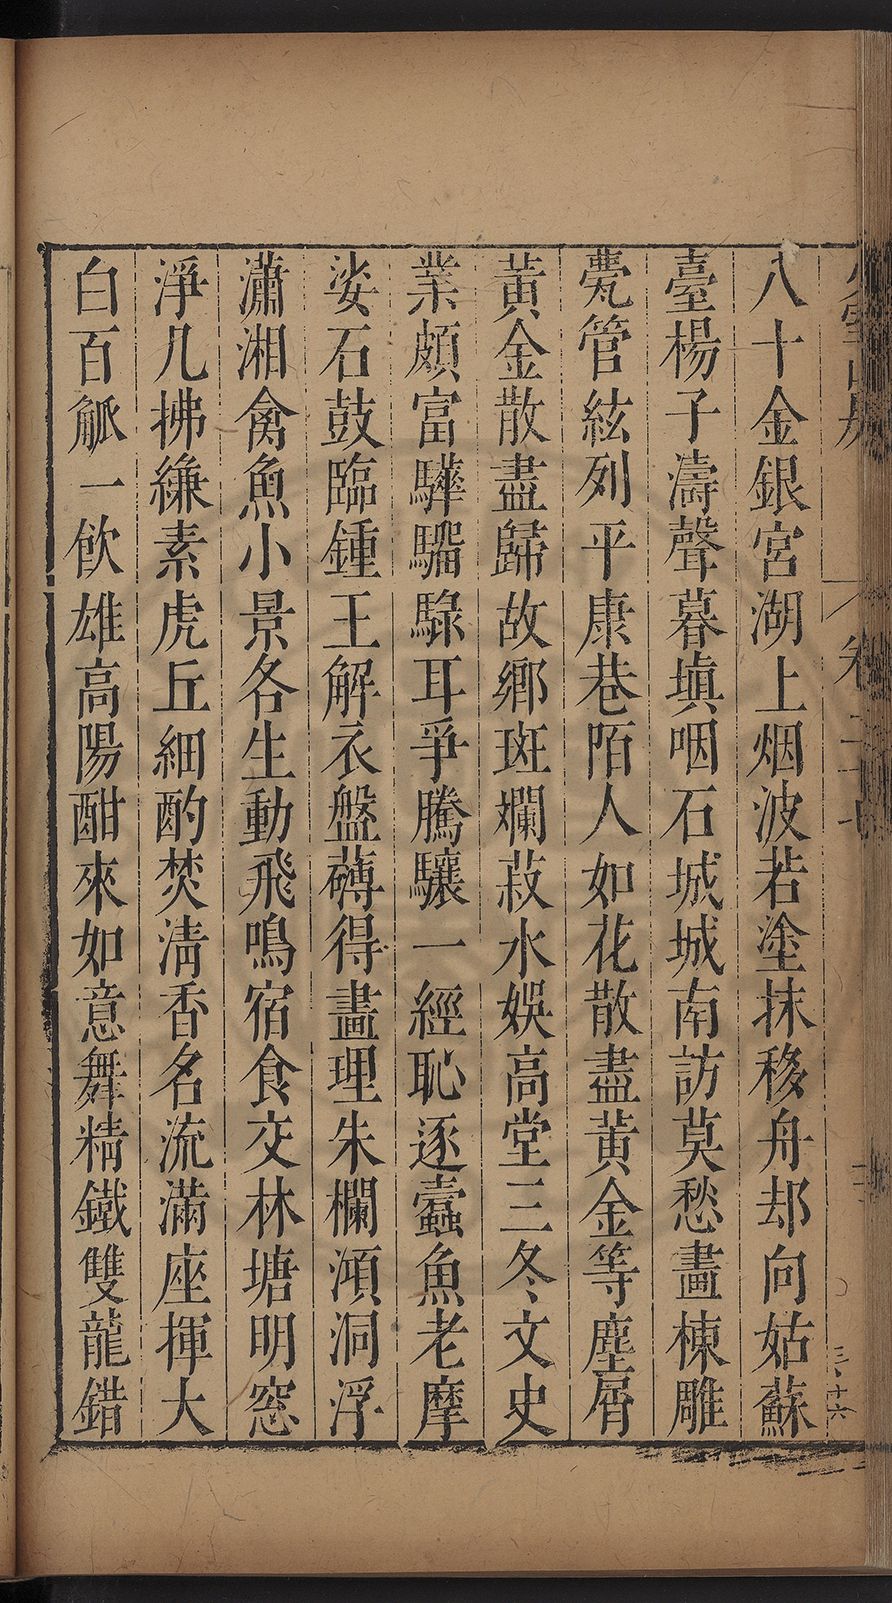 八十金銀宮湖上烟波若塗抹移舟却向姑蘇
臺楊子濤聲暮塡咽石城城南訪莫愁畫棟雕
甍管絃列平康巷陌人如花散盡黃金等塵屑
黃金散盡歸故鄉斑斕菽水娛高堂三冬文史
業頗富驊騮騄耳爭騰驤一經恥逐蠹魚老摩
娑石鼓臨鍾王解衣盤礴得畫理朱欄澒洞浮
瀟湘禽魚小景各生動飛鳴宿食交林塘明窓
淨几拂縑素虎丘細酌焚淸香名流滿座揮大
白百觚一飮雄高陽酣來如意舞精鐵雙龍錯